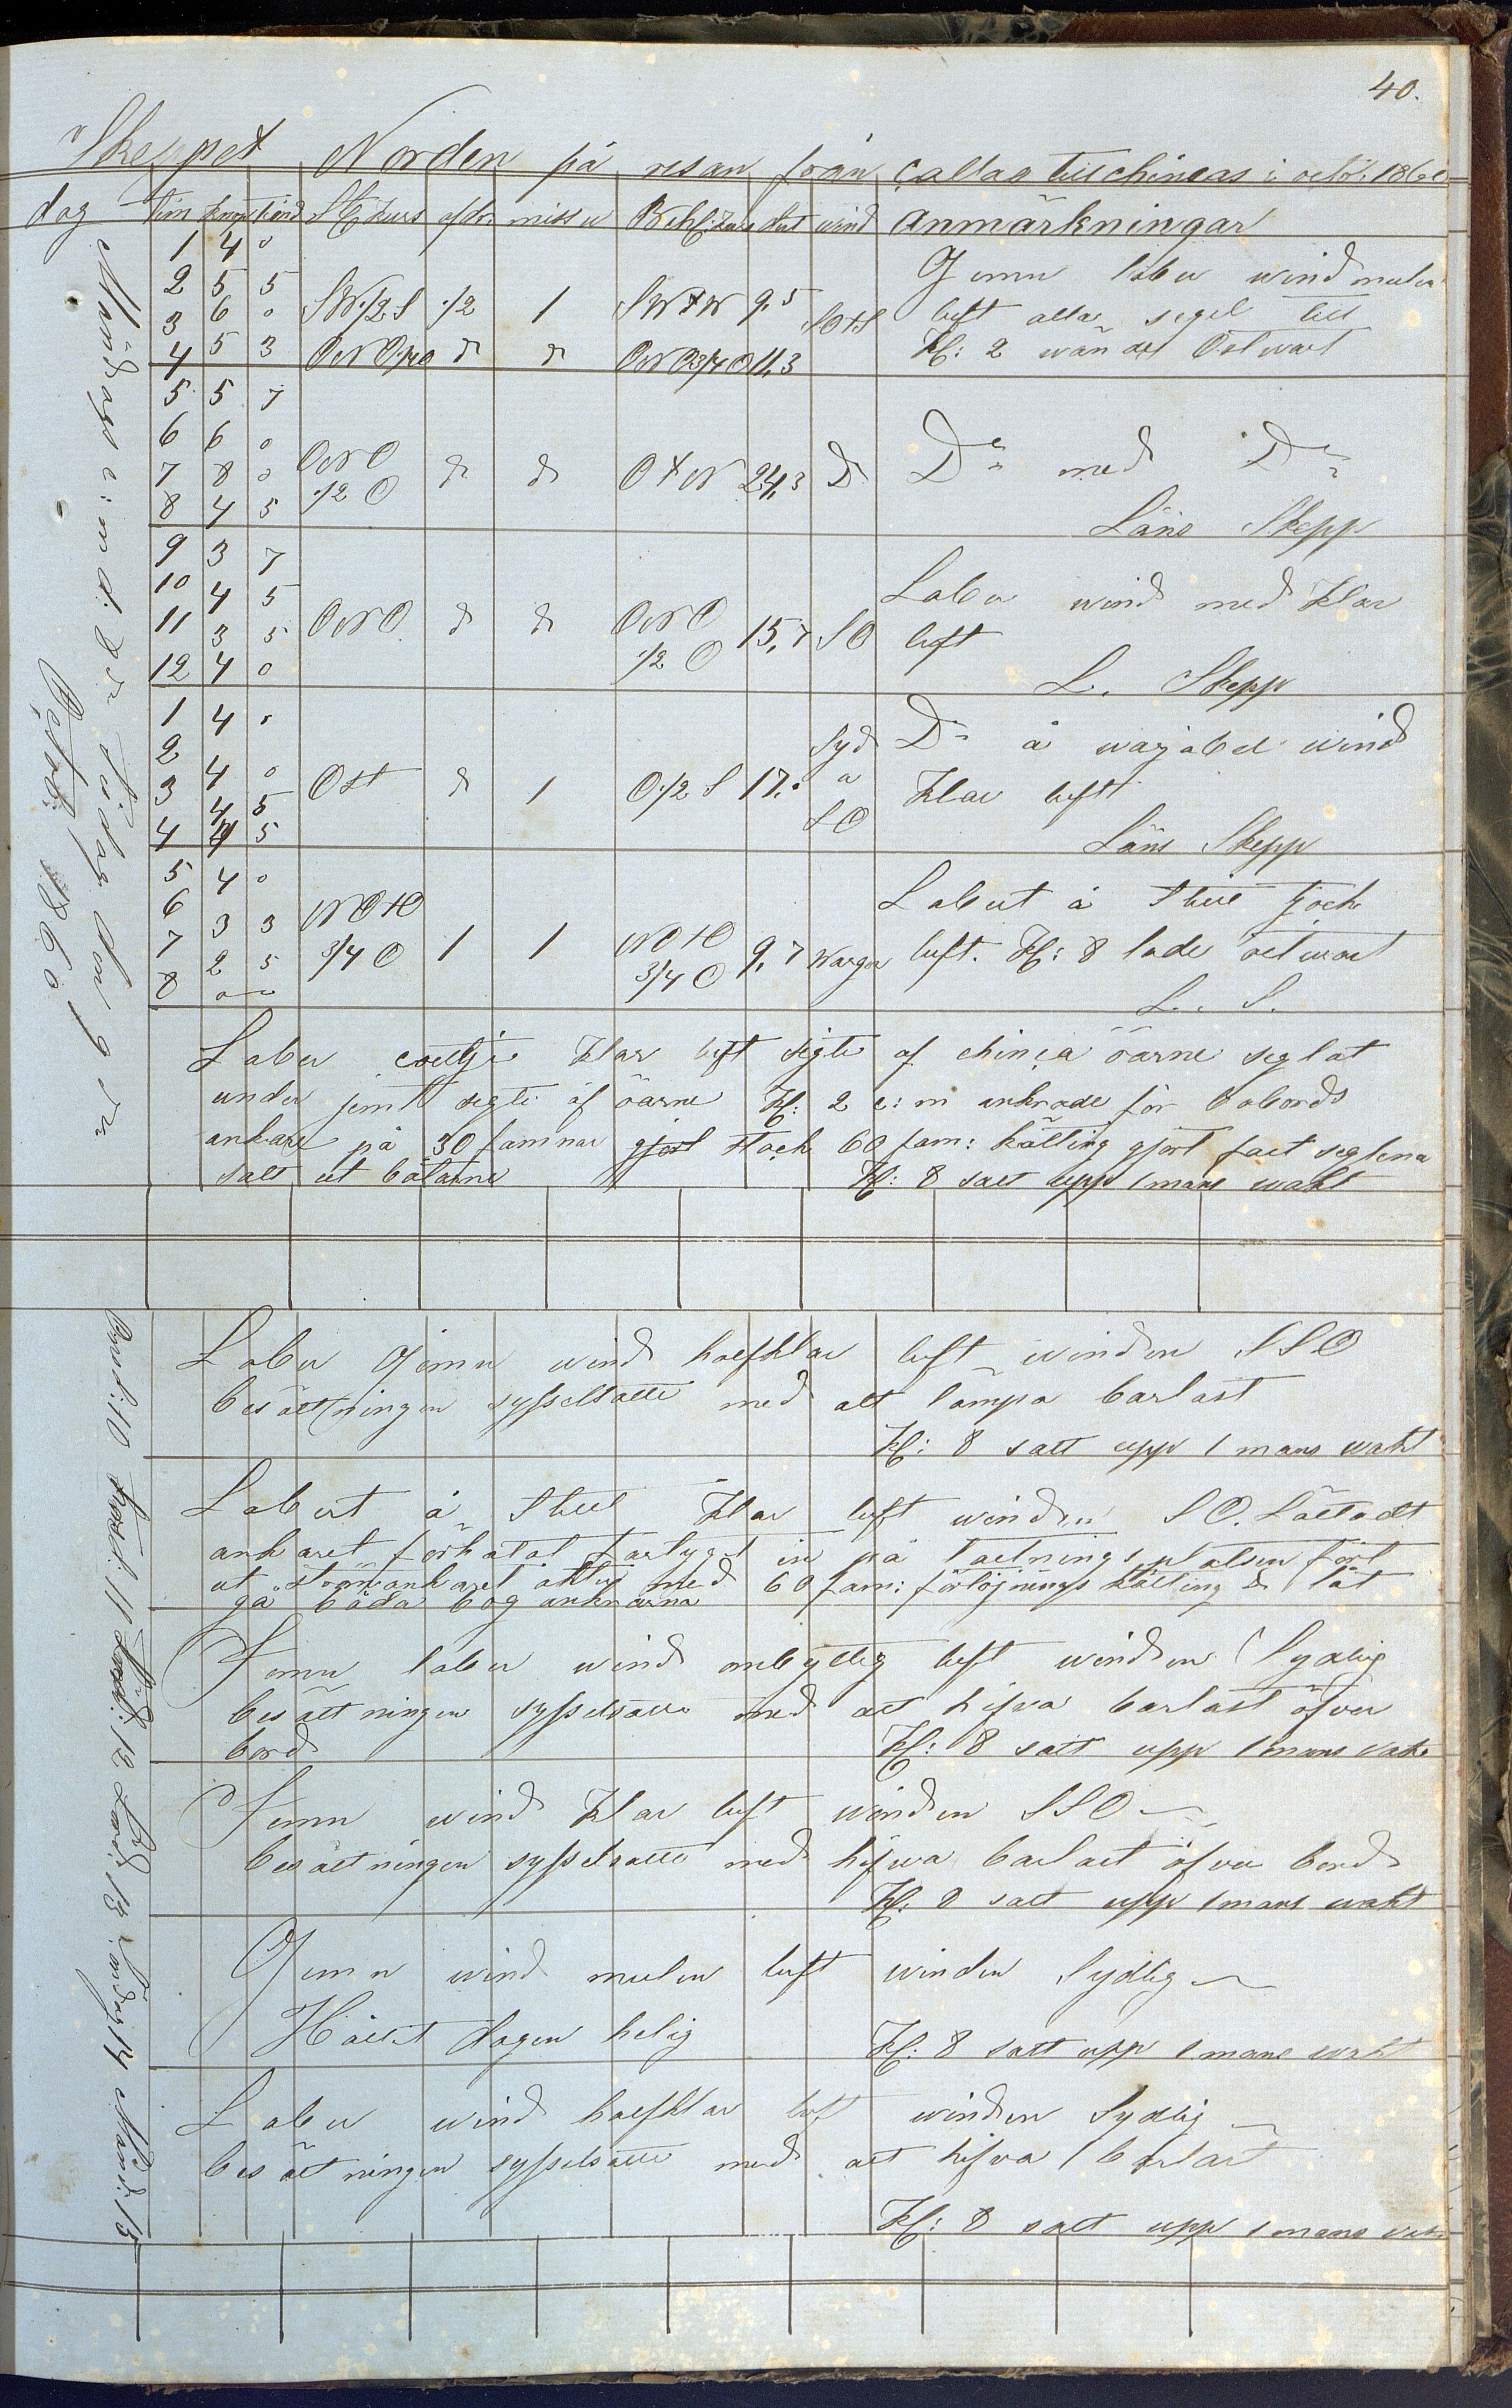 40.
Skeppet Norden på resan från Callao till chincas i octob. 1860
dag tim knop tiend St. kurs afdr. miss w Beh: kurs dist wind anmärkningar
1 4 0
2 5 5
3 6 0 SW 1/2 S 1/2 1 SWtW 9.5 SOtS
4 5 3 ONO 1/4 O do do ONO 3/4 O 11,3
Jemn laber wind mulen
luft alla segel till
Kl: 2 wände Ostwart
5 5 7
6 6 0
7 8 0 ONO
8 4 5 1/2 O do do OtN 24,3 do
Do med Do
Läns Skepp
9 3 7
10 4 5
11 3 5 ONO do do ONO
12 4 0 1/2 O 15,7 SO
Laber wind med klar
luft
L. Skepp
1 4 0
2 4 0
3 4 5 Ost do 1 O 1/2 S 17,0 Syd a SO
4 4 5
Do å warjabel wind
klar luft
Läns Skepp
5 4 0
6 3 3 NOtO
7 2 5 3/4 O 1 1 NOtO 3/4 O 9,7 Warga
8
Labert å stiel tjock
luft. Kl: 8 lade ostwart
L. S.
Måndag e: m d: 8 de Tisdag den 9 de
Octob: 1860
Laber coeltje klar luft sigte af chinca öarne seglat
under jemt sigte af öarne Kl: 2 e: m ankrade för babords
ankare på 30 famnar stack 60 fam: kätting gjort fast seglena
satt ut båtarne Kl: 8 satt upp 1 mans wakt
Onsd: 10
Laber Jemn wind halfklar luft winden SSO
besättningen sysselsatte med att lämpa barlast
Kl: 8 satt upp 1 mans wakt
Torsd: 11
Labert å stiel klar luft winden SO. Lättadt
ankaret förhalat fartyget in på lastningsplatsen fört
ut strömankaret akter med 60 fam: förtöjnings kätting & låt
gå båda bog ankrarna
Fred: 12
Jemn laber wind ombytlig luft winden Sydlig
besättningen sysselsatte med att hifwa barlast öfver
bord Kl: 8 satt upp 1 mans wakt
Lörd: 13
Jemn wind klar luft winden SSO
besättningen sysselsatte med hifwa barlast öfver bord
Kl: 8 satt upp 1 mans wakt
Söndag 14
Jemn wind mulen luft winden Sydlig
Hållit dagen helig Kl: 8 satt upp 1 mans wakt
Månd: 15
Laber wind halfklar luft winden Sydlig
besättningen sysselsatte med att hifwa barlast
Kl: 8 satt upp 1 mans wakt